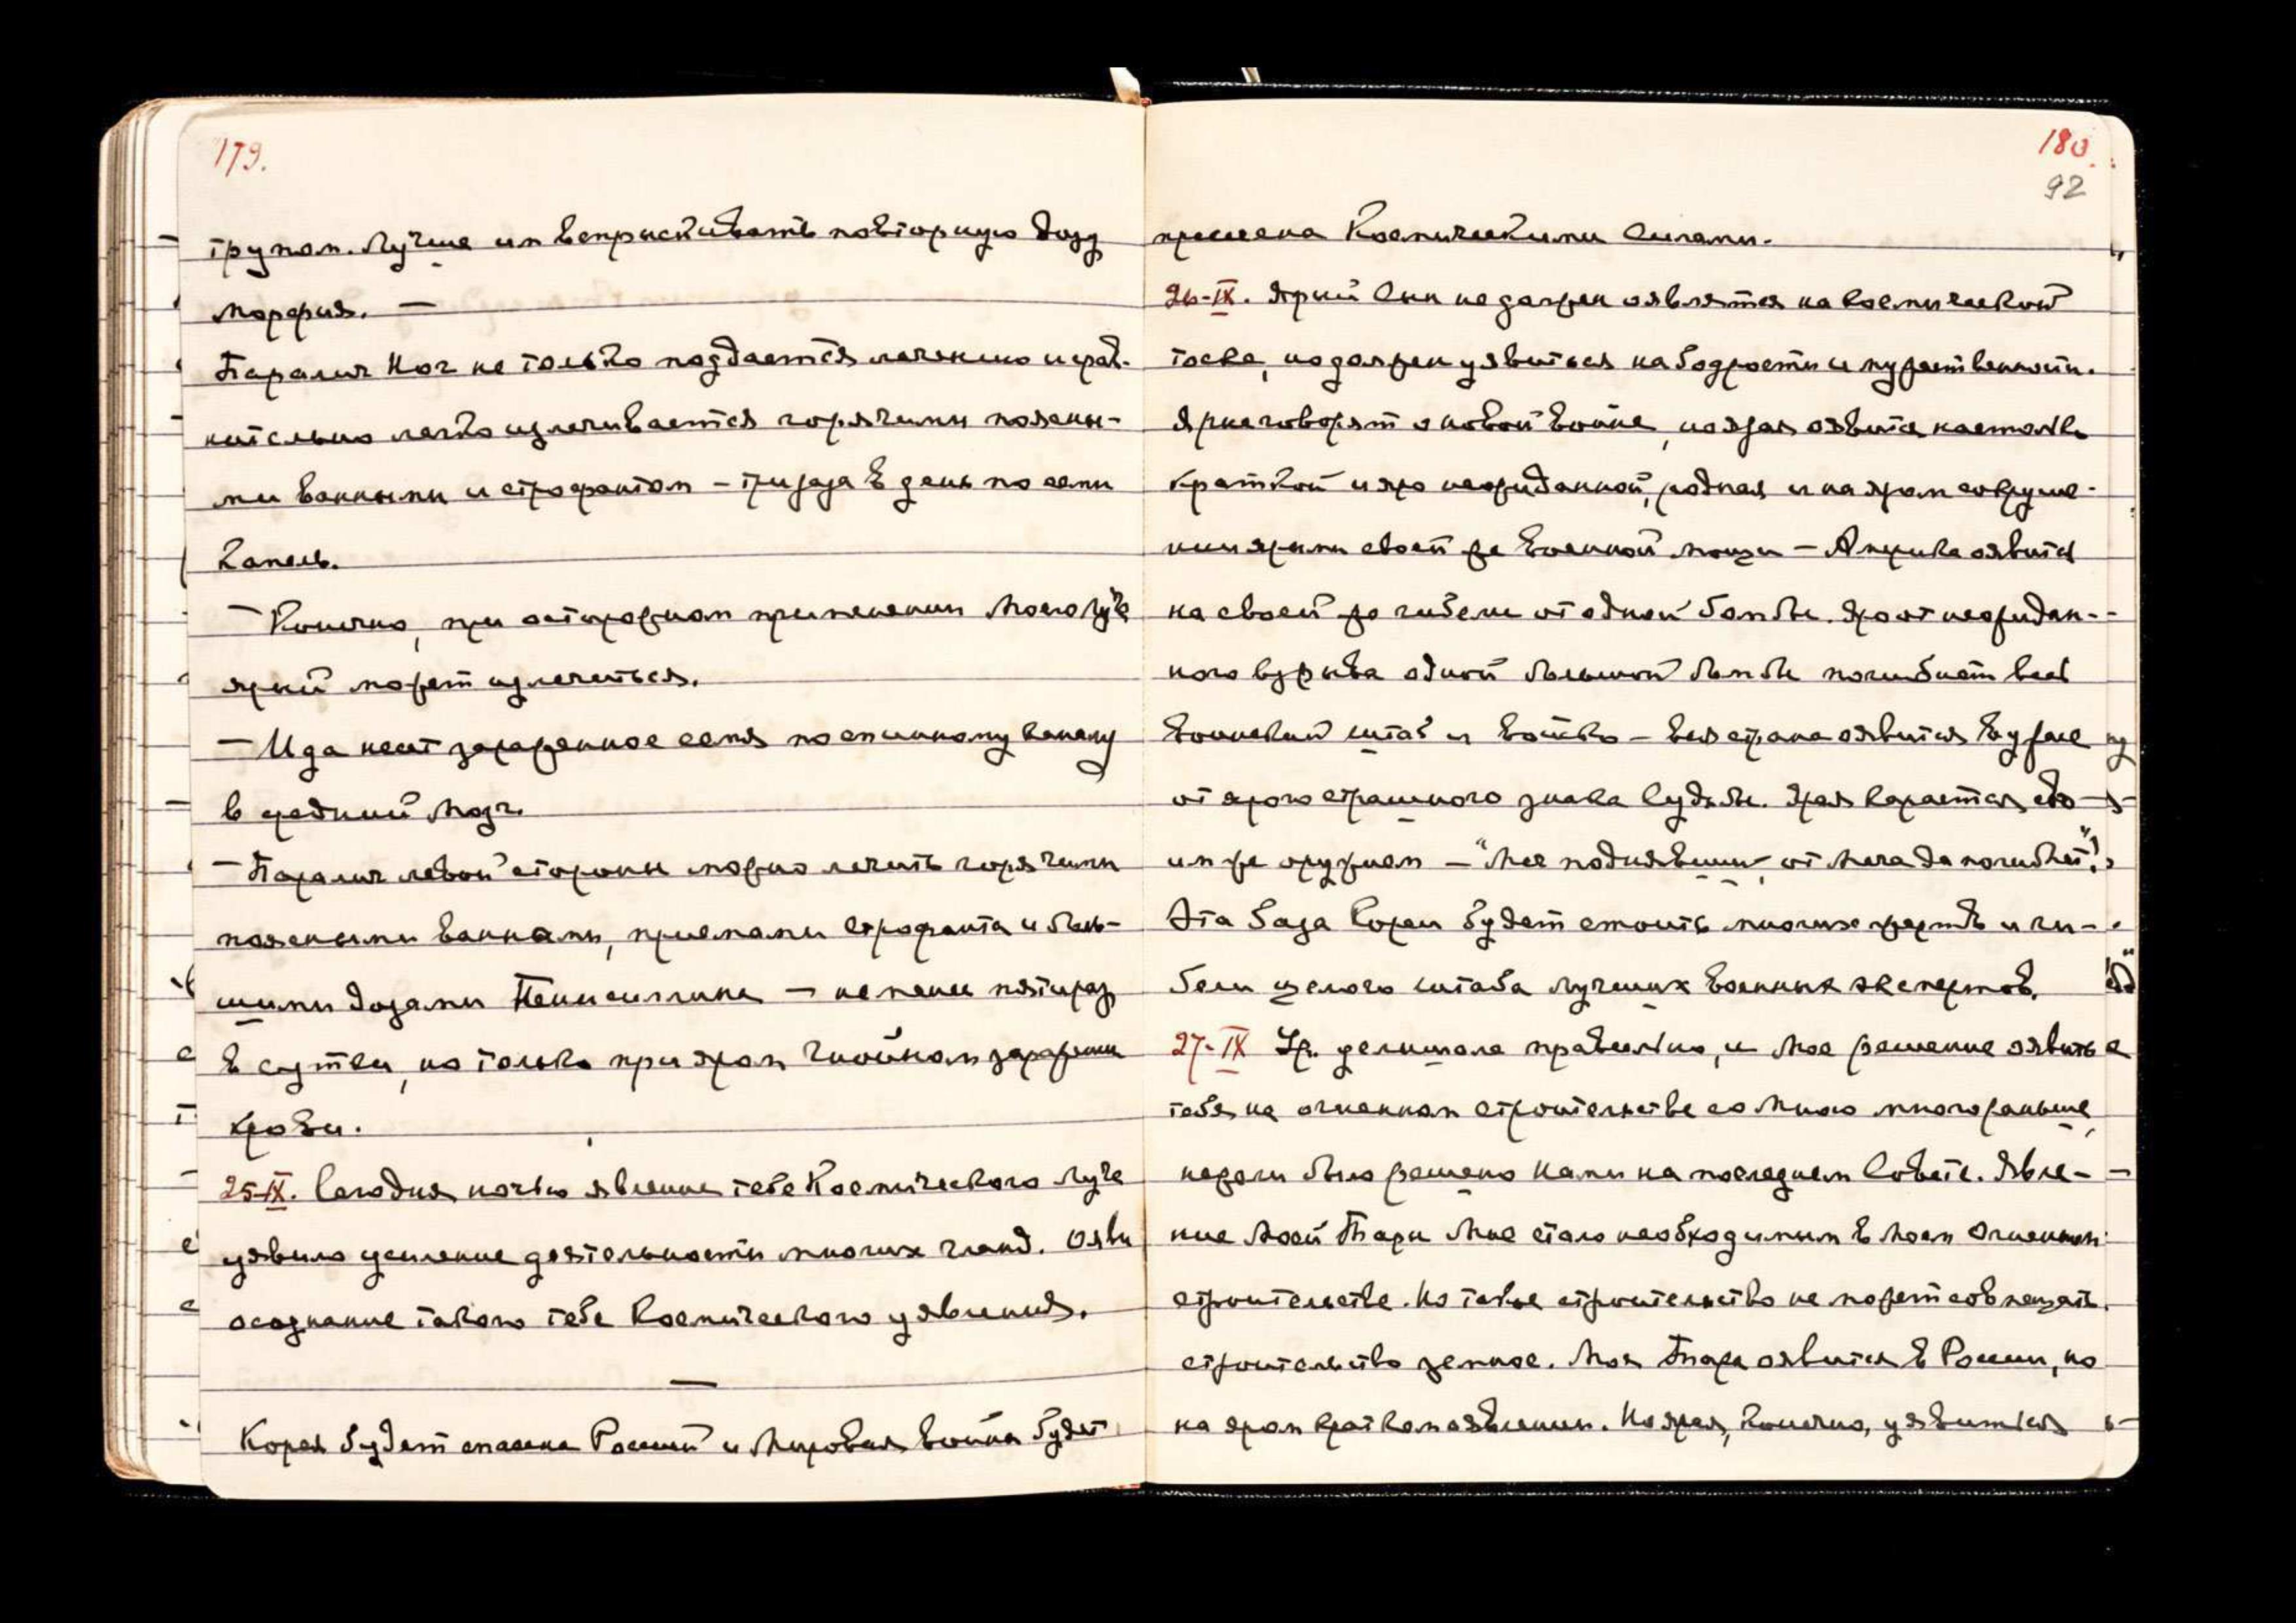 179.
трупом. Лучше им вспрыскивать повторную дозу
морфия. —
Паралич Ног не только поддается лечению и срав-
нительно легко излечивается горячими поясны-
ми ванными и строфантом – три раза в день по семи
капель.
– Конечно, при осторожном применении Моего Луча
ярый может излечиться.
– Ида несет зараженное семя по спинному каналу
в средний мозг.
– Паралич левой стороны можно лечить горячими
поясными ваннами, приемами строфанта и боль-
шими дозами Пенисиллина – не менее пяти раз
в сутки, но только при яром гнойном заражении
крови.
25-IX. Сегодня ночью явление тебе Космического Луча
уявило усиление деятельности многих гланд. Ояви
осознание такого тебе Космического уявления.
—
Корея будет спасена Россией и Мировая война будет
180.
92
пресечена Космическими Силами.
26-IX. Ярый Сын не должен оявляться на космической
тоске, но должен уявиться на бодрости и мужественности.
Ярые говорят о новой войне, но ярая оявится настолько
краткой и яро неожиданной, родная и на яром сокруше-
нии ярыми своей же военной мощи – Америка оявится
на своей же гибели от одной бомбы. Яро от неожидан-
ного взрыва одной большой бомбы погибнет весь
воинский штаб и войско – вся страна оявится в ужасе
от ярого страшного знака Судьбы. Ярая карается ево-
им же оружием – "Меч поднявший, от меча да погибнет"!
Эта база Кореи будет стоить многих жертв и ги-
бели целого штаба лучших военных экспертов.
27-IX Ур. услышала правильно, и Мое решение оявить
тебя на огненном строительстве со Мною много раньше,
нежели было решено Нами на последнем Совете. Явле-
ние Моей Тары Мне стало необходимым в Моем Огненном
строительстве. Но такое строительство не может совмещать
строительство земное. Моя Тара оявится в России, но
на яром кратком оявлении. Но ярая, конечно, уявится